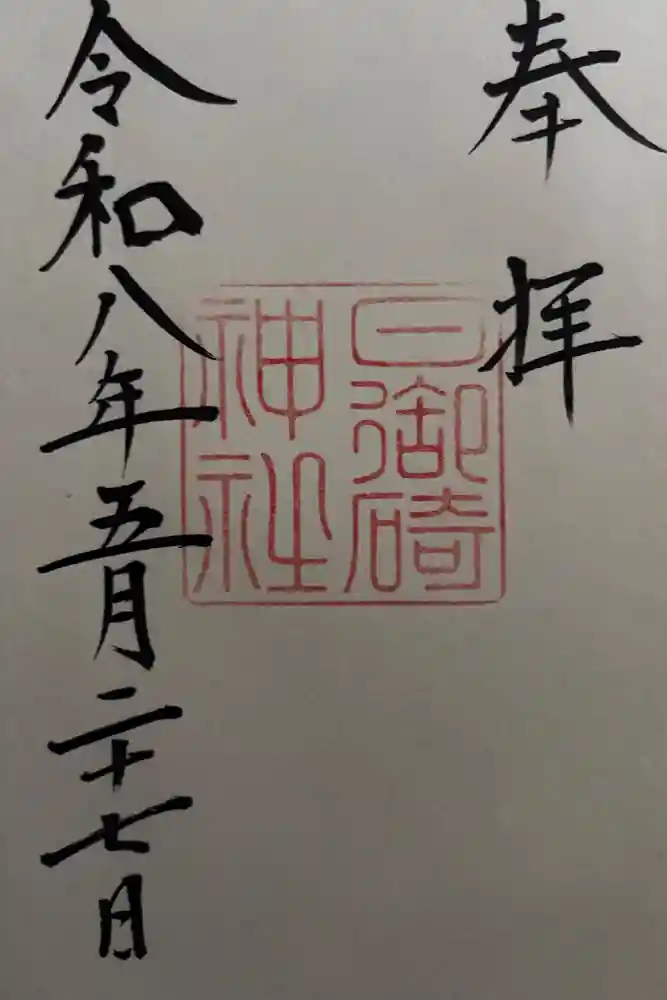 奉拝
日御碕
神社
令和八年五月二十七日